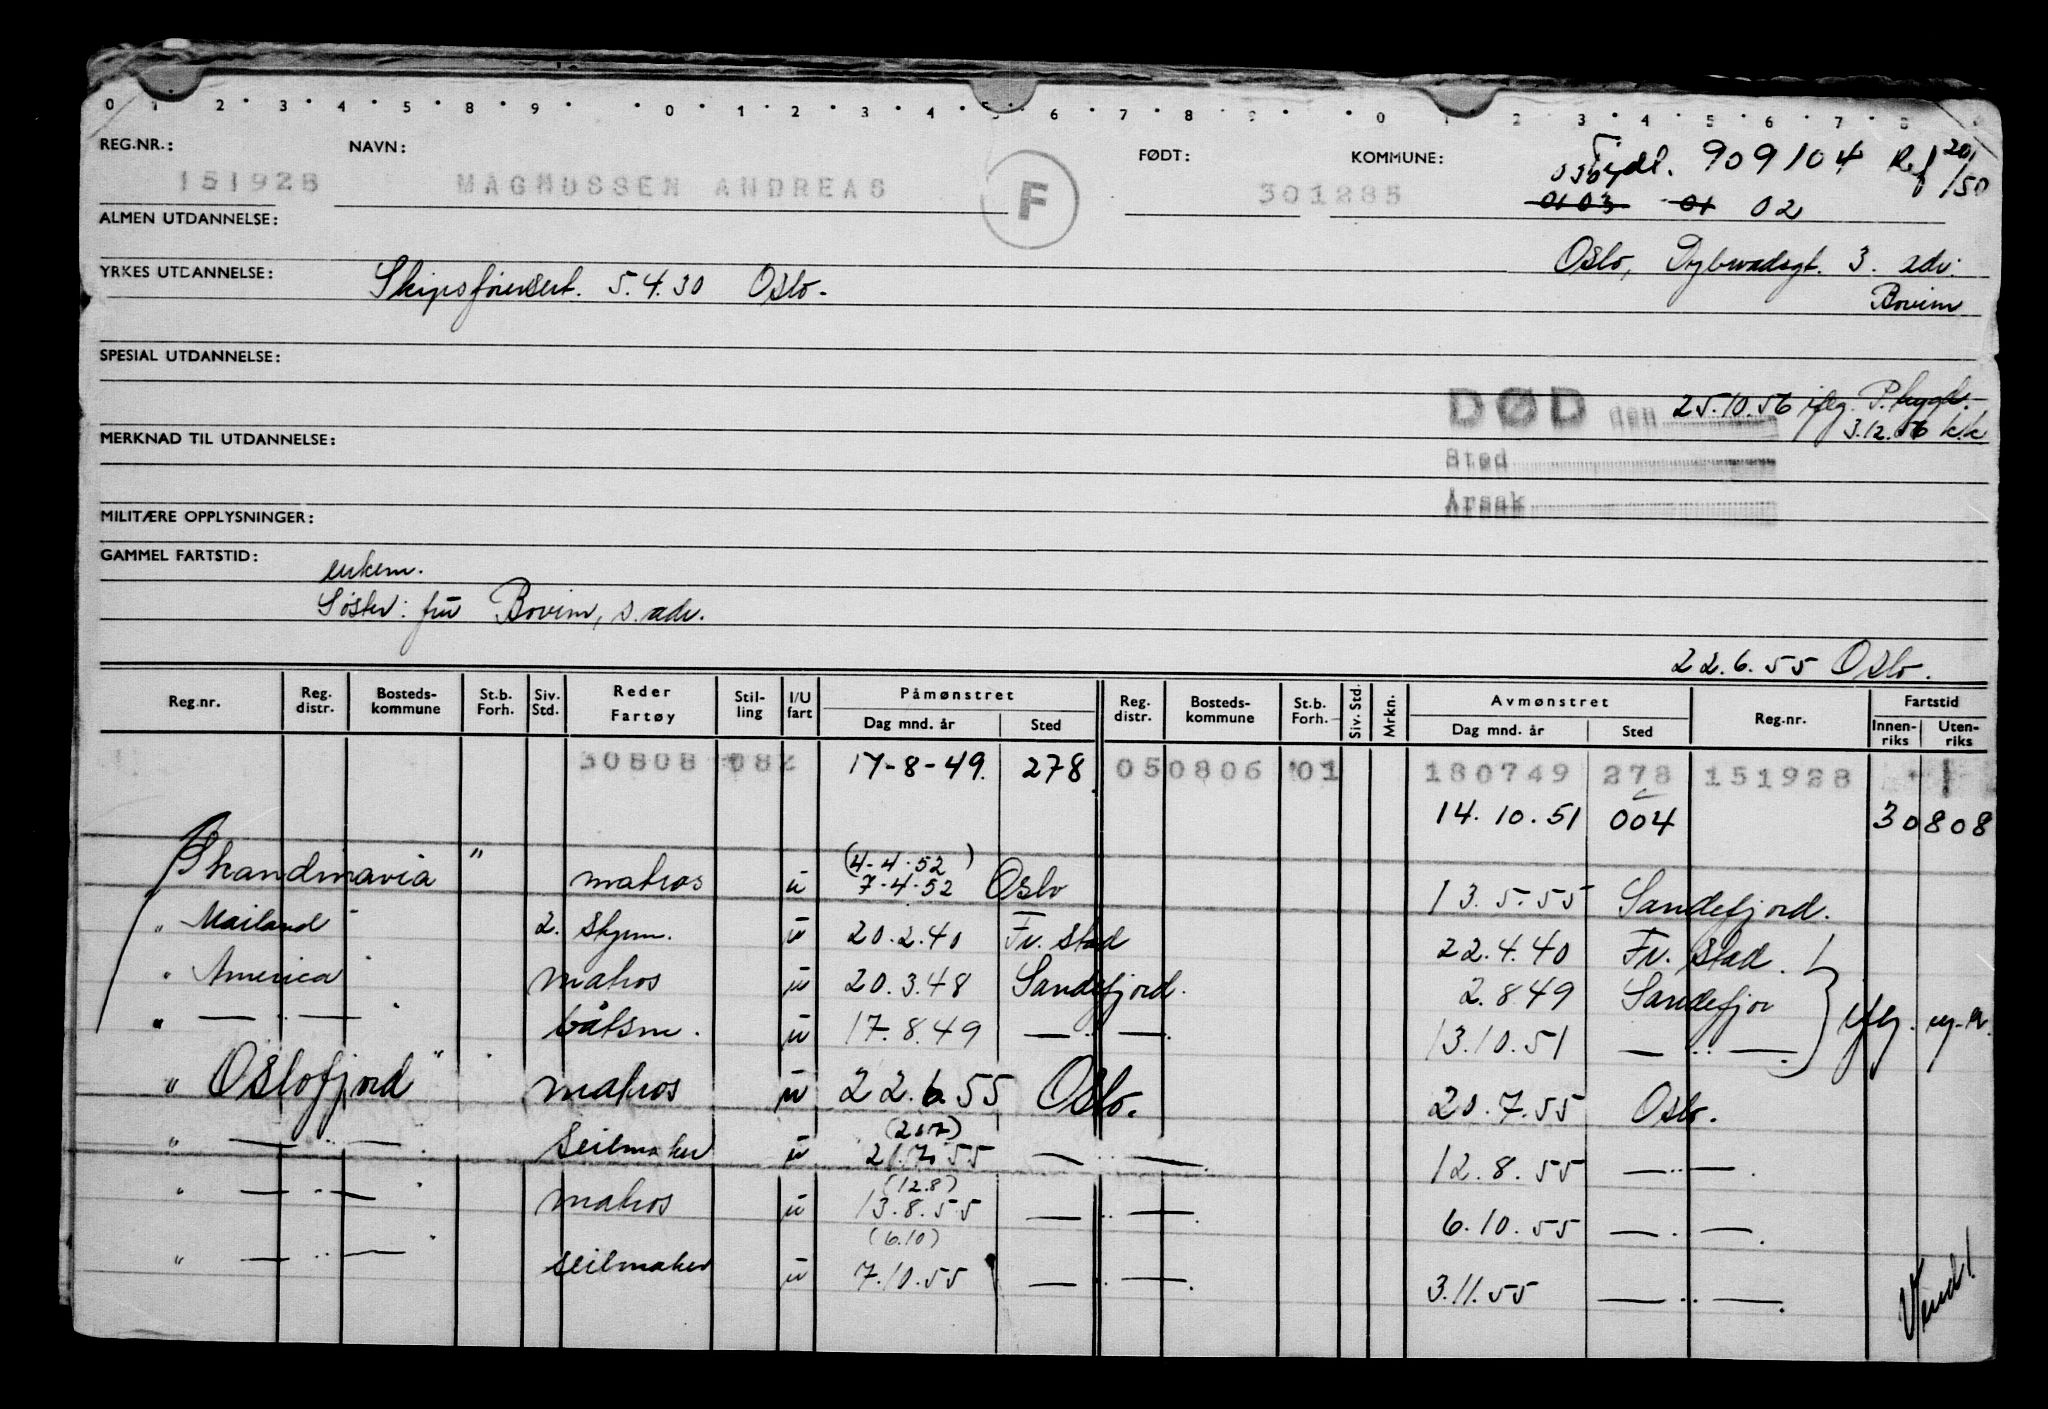 0 1 2 3 4 5 8 9 0 1 2 3 4 5 6 7 8 9 0 1 2 3 4 5 6 7 8
REG.NR.: NAVN: FØDT: KOMMUNE:
909104 Ref 20/50
151928 MAGNUSSEN ANDREAS F 301285 0103 01 02
ALMEN UTDANNELSE:
Oslo, Dybwadsgt. 3. adv.
Bovim
YRKES UTDANNELSE: Skipsførersert. 5.4.30 Oslo.
SPESIAL UTDANNELSE:
DØD den 25.10.56 iflg.
3.12.56 kk
MERKNAD TIL UTDANNELSE:
Sted
Årsak
MILITÆRE OPPLYSNINGER:
GAMMEL FARTSTID:
enkem.
Søster: fru Bovim, s. adv.
22.6.55 Oslo.
Reg.nr. Reg. distr. Bosteds-kommune St.b. Forh. Siv. Std. Reder Fartøy Stil-ling I/U fart Påmønstret Dag mnd. år Sted Reg. distr. Bosteds-kommune St.b. Forh. Siv. Std. Mrkn. Avmønstret Dag mnd. år Sted Reg.nr. Fartstid Innen-riks Uten-riks
30808 082 17-8-49. 278 050806 01 180749 278 151928 1
14.10.51 004 30808
Skandinavia " matros u (4-4-52) 7-4-52 Oslo 13.5.55 Sandefjord.
" Mailand " 2. skjm. u 20.2.40 Fr. stad 22.4.40 Fr. stad.
" America " matros u 20.3.48 Sandefjord. 2.8.49 Sandefjor
" — " — " båtsm. u 17.8.49 — " —. 13.10.51 — " —. iflg.
" Oslofjord " matros u 22.6.55 Oslo. 20.7.55 Oslo.
(20.7)
" — " — " seilmaker u 21.7.55 — " —. 12.8.55 — " —.
(12.8)
" — " — " matros u 13.8.55 — " —. 6.10.55 — " —.
(6.10)
" — " — " seilmaker u 7.10.55 — " —. 3.11.55 — " —.
Vend!